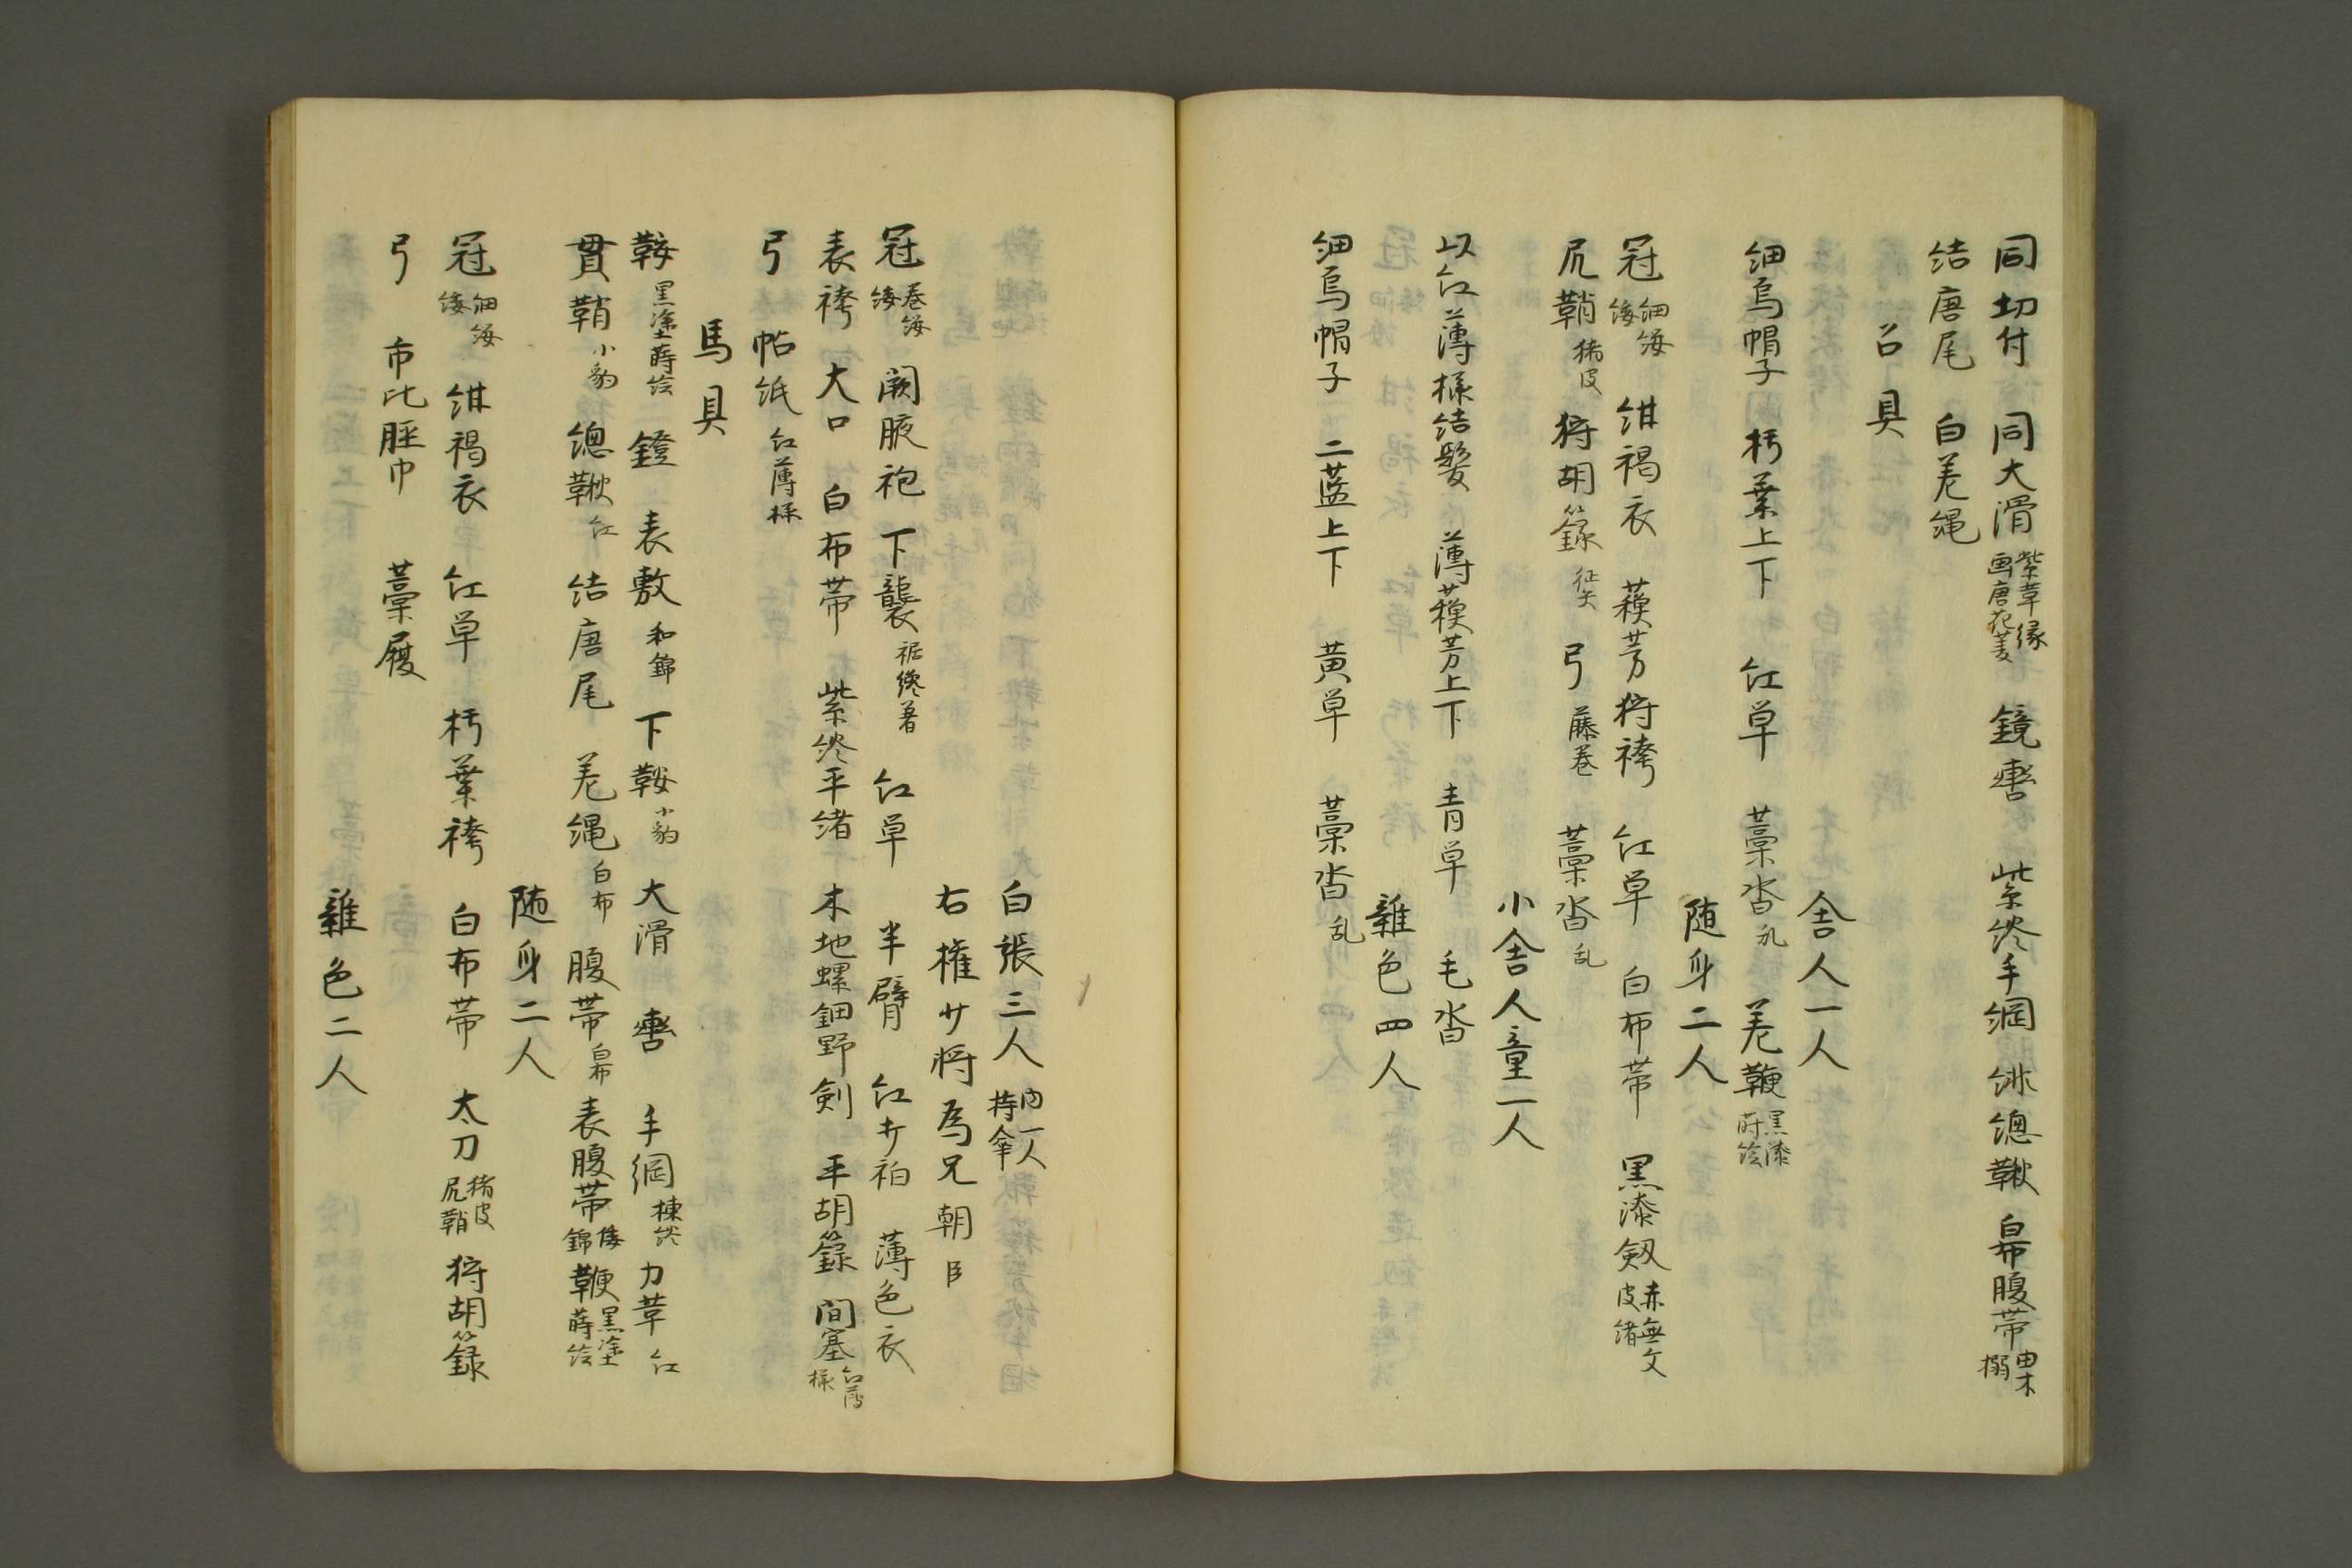 同切付　同大滑 紫革縁 画唐花菱　鏡轡　紫終手綱　緋総鞦　白布腹帯 由木 搦
結唐尾　白差縄
召具
舎人一人
細烏帽子　朽葉上下　紅単　藁沓 乱　差鞭 黒漆 蒔絵
随身二人
冠 細纓 緌　紺褐衣　蘓芳狩袴　紅単　白布帯　黒漆剱 赤無文 皮緒
尻鞘 猪皮　狩胡籙 征矢　弓 藤巻　藁沓 乱
小舎人童一人
以紅薄様結髪　薄蘓芳上下　青単　毛沓
雑色四人
細烏帽子　二藍上下　黄単　藁沓 乱
白張三人 内一人 持傘
右権少将為兄朝臣
冠 巻纓 緌　闕腋袍　下襲 裾終着　紅単　半臂　紅打衵　薄色衣
表袴　大口　白布帯　紫終平緒　木地螺鈿野剣　平胡籙　間塞 紅薄 様
弓　帖紙 紅薄様
馬具
鞍 黒塗蒔絵　鐙　表敷 和錦　下鞍 小豹　大滑　轡　手綱 楝終　力革 紅
貫鞘 小豹　総鞦 紅　結唐尾　差縄 白布　腹帯 白布　表腹帯 倭 錦　鞭 黒塗 蒔絵
随身二人
冠 細纓 緌　紺褐衣　紅単　朽葉袴　白布帯　太刀 猪皮 尻鞘　狩胡籙
弓　市比脛巾　藁履
雑色二人